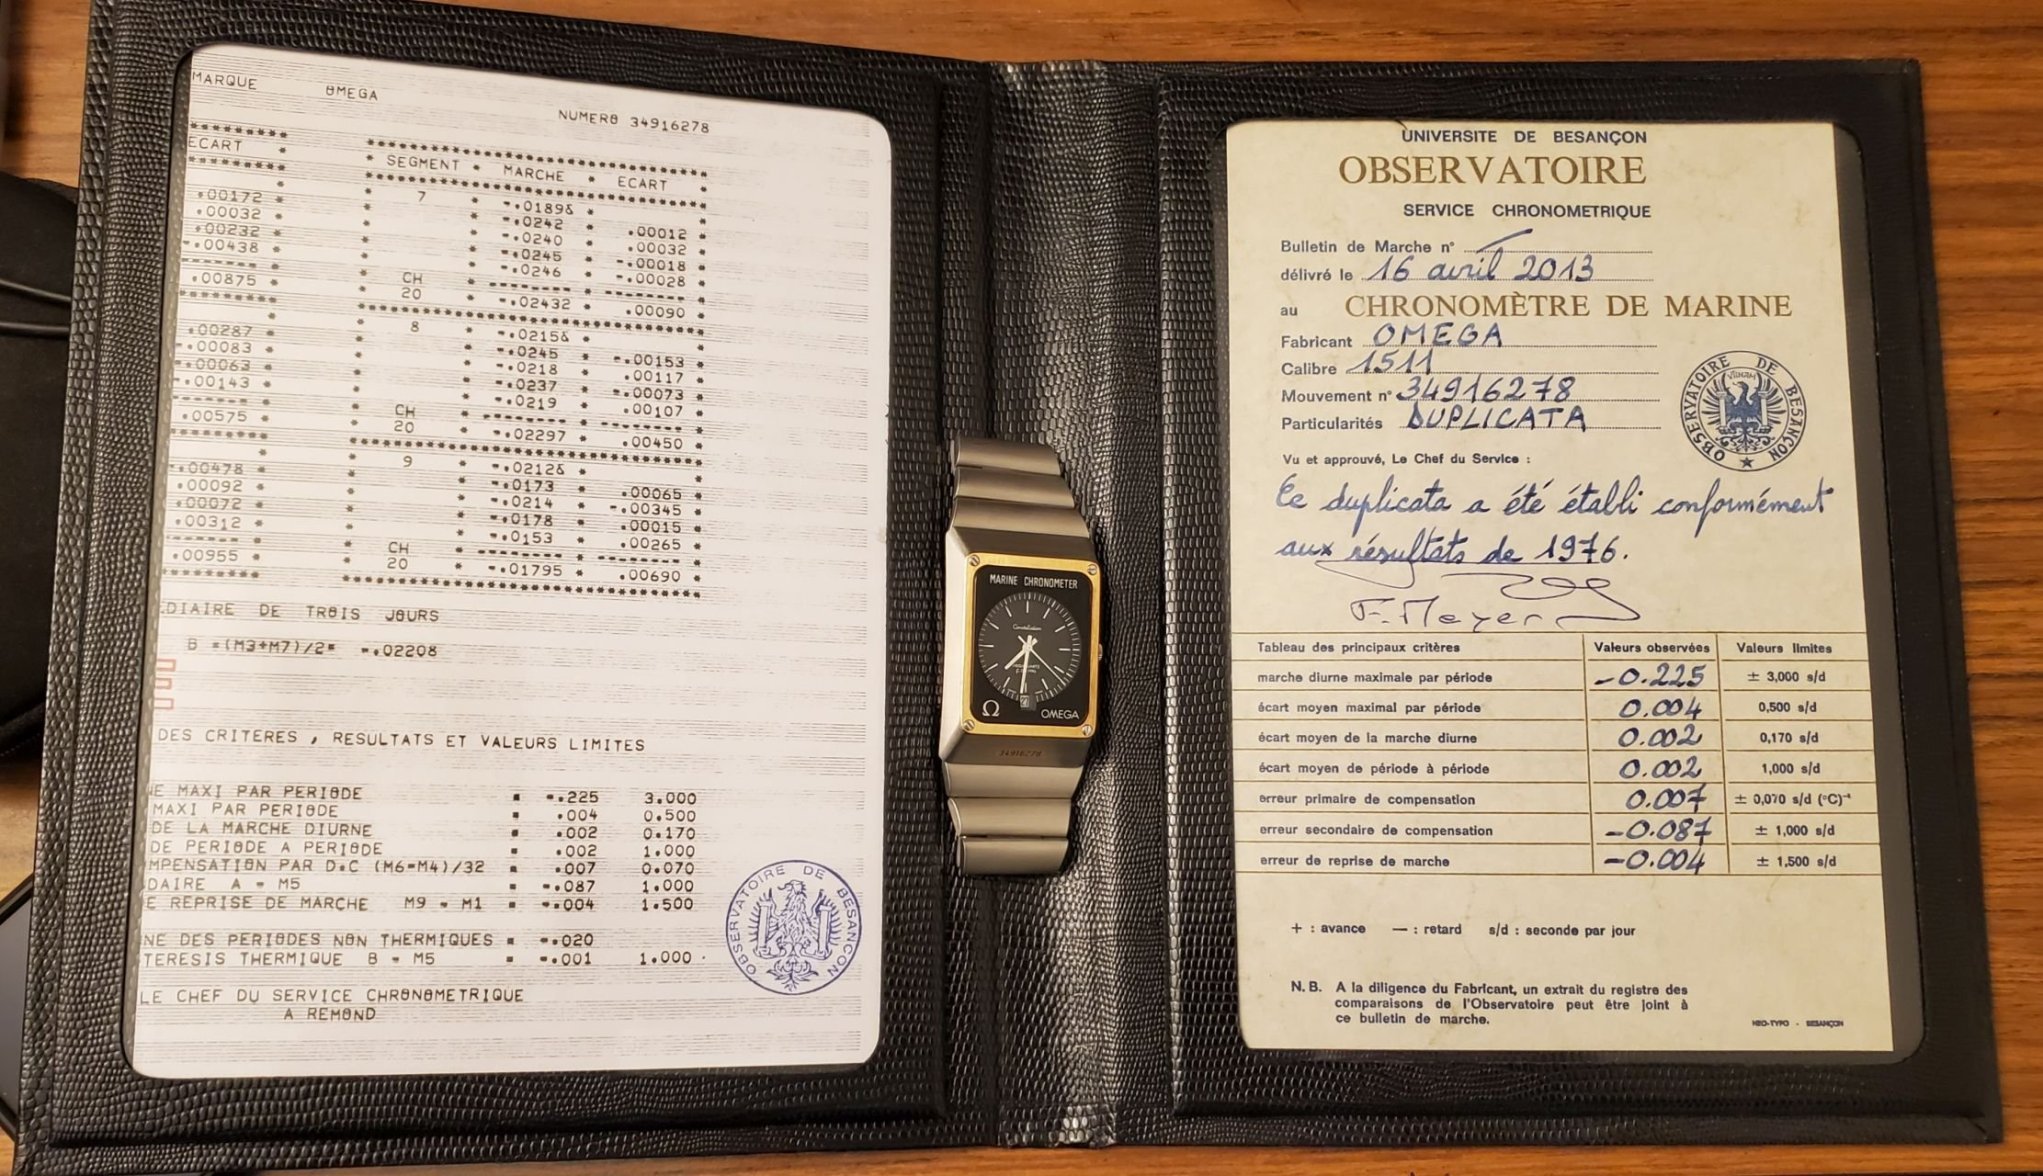 MARQUE OMEGA
NUMERO 34916278
ECART * * SEGMENT * MARCHE * ECART *
7 * -.0189& *
.00172 * * -.0242 * .00012 *
.00032 * * -.0240 * .00032 *
.00232 * * -.0245 * -.00018 *
-.00438 * * -.0246 * -.00028 *
CH
.00875 * 20 * -.02432 * .00090 *
8 * -.0215& *
.00287 * * -.0245 * -.00153 *
-.00083 * * -.0218 * .00117 *
-.00063 * * -.0237 * -.00073 *
-.00143 * * -.0219 * .00107 *
CH
.00575 * 20 * -.02297 * .00450 *
9 * -.0212& *
-.00478 * * -.0173 * .00065 *
.00092 * * -.0214 * -.00345 *
.00072 * * -.0178 * .00015 *
.00312 * * -.0153 * .00265 *
CH
.00955 * 20 * -.01795 * .00690 *
DIAIRE DE TROIS JOURS
B =(M3+M7)/2= -.02208
DES CRITERES , RESULTATS ET VALEURS LIMITES
E MAXI PAR PERIODE = -.225 3.000
MAXI PAR PERIODE = .004 0.500
DE LA MARCHE DIURNE = .002 0.170
DE PERIODE A PERIODE = .002 1.000
MPENSATION PAR D.C (M6-M4)/32 = .007 0.070
DAIRE A - M5 = -.087 1.000
E REPRISE DE MARCHE M9 - M1 = -.004 1.500
NE DES PERIODES NON THERMIQUES = -.020
TERESIS THERMIQUE B - M5 = -.001 1.000
LE CHEF DU SERVICE CHRONOMETRIQUE
A REMOND
OBSERVATOIRE DE BESANCON
MARINE CHRONOMETER
Constellation
Ω OMEGA
34916278
UNIVERSITE DE BESANÇON
OBSERVATOIRE
SERVICE CHRONOMETRIQUE
Bulletin de Marche n°
délivré le 16 avril 2013
au CHRONOMÈTRE DE MARINE
Fabricant OMEGA
Calibre 1511
Mouvement n° 34916278
Particularités DUPLICATA
OBSERVATOIRE DE BESANÇON
Vu et approuvé, Le Chef du Service :
Ce duplicata a été établi conformément
aux résultats de 1976.
F. Meyer
Tableau des principaux critères Valeurs observées Valeurs limites
marche diurne maximale par période -0.225 ± 3,000 s/d
écart moyen maximal par période 0.004 0,500 s/d
écart moyen de la marche diurne 0.002 0,170 s/d
écart moyen de période à période 0.002 1,000 s/d
erreur primaire de compensation 0.007 ± 0,070 s/d (°C)⁻¹
erreur secondaire de compensation -0.087 ± 1,000 s/d
erreur de reprise de marche -0.004 ± 1,500 s/d
+ : avance — : retard s/d : seconde par jour
N.B. A la diligence du Fabricant, un extrait du registre des
comparaisons de l'Observatoire peut être joint à
ce bulletin de marche.
NEO-TYPO - BESANÇON